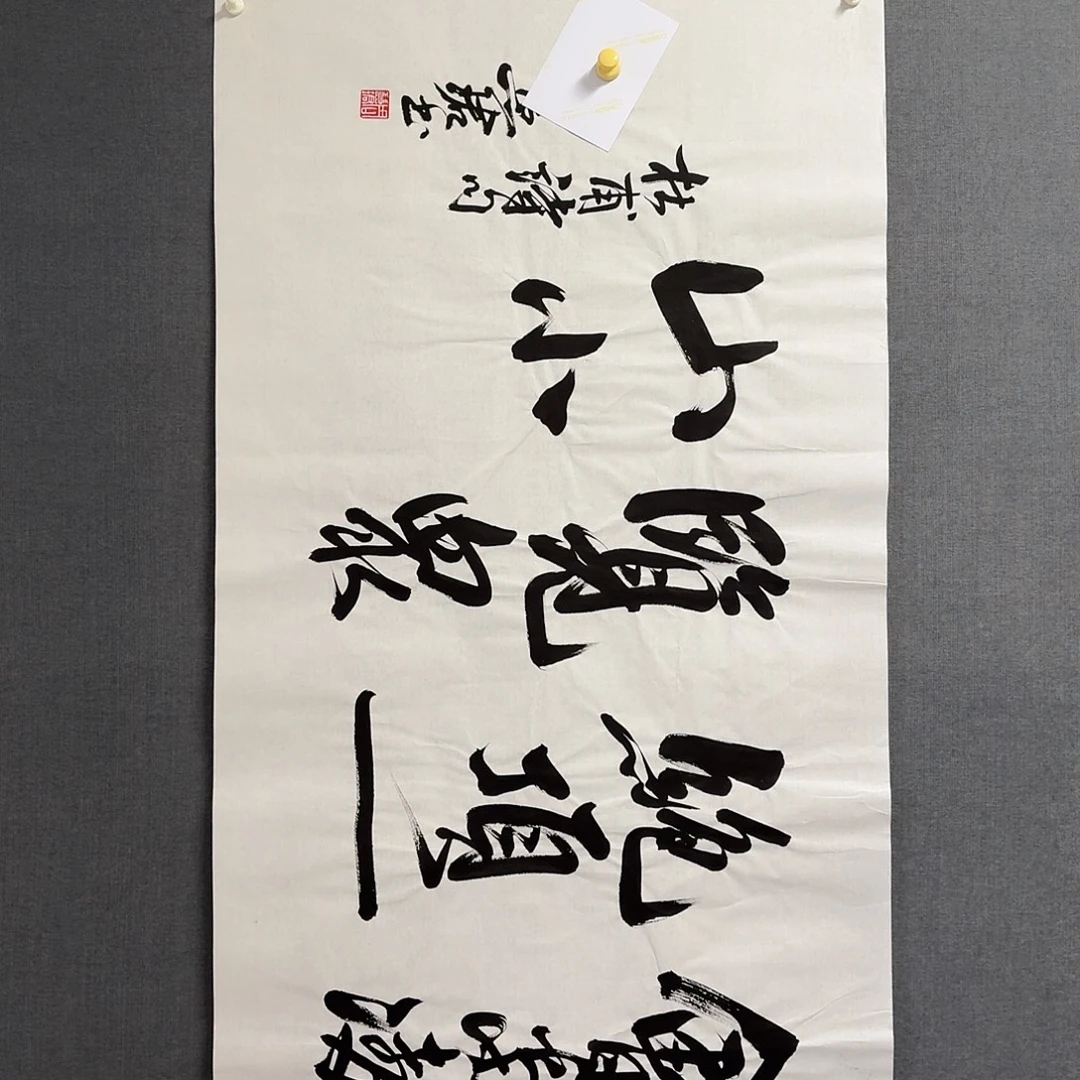 會當凌
絕頂一
覽眾
山小
杜甫詩句
书